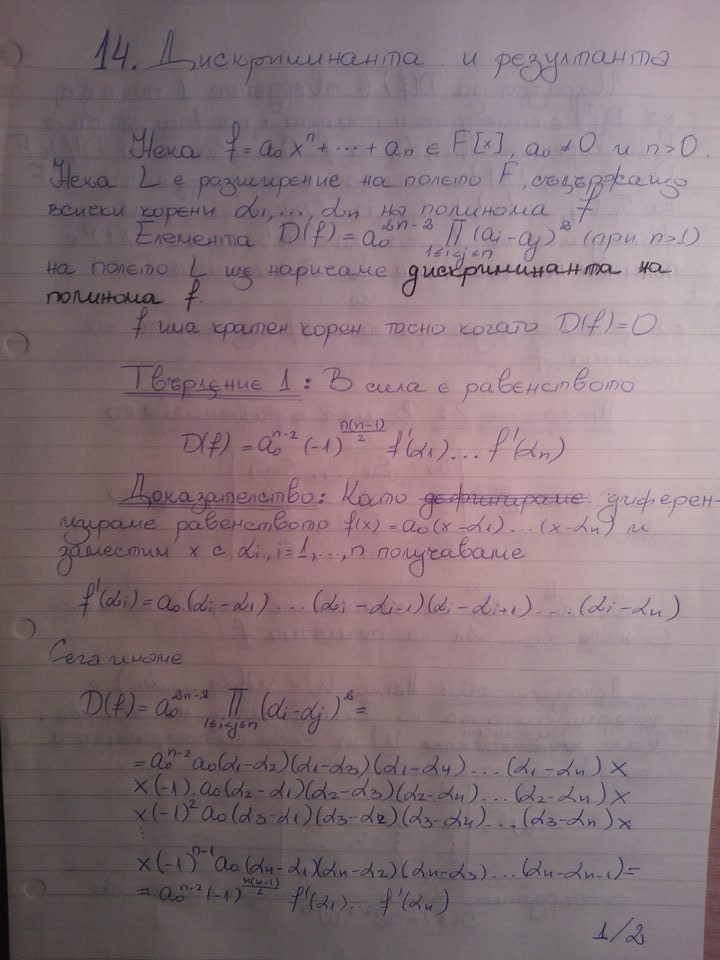 14. Дискриминанта и резултанта
Нека f = a₀xⁿ + ... + aₙ ∈ F[x], a₀ ≠ 0 и n>0.
Нека L е разширение на полето F, съдържащо
всички корени α₁, ..., αₙ на полинома f
Елемента D(f) = a₀²ⁿ⁻² ∏_{1≤i<j≤n} (αi - αj)² (при n>1)
на полето L ще наричаме дискриминанта на
полинома f.
f има кратен корен точно когато D(f)=0
Твърдение 1: В сила е равенството
D(f) = a₀ⁿ⁻² (-1)^{n(n-1)/2} f'(α₁) ... f'(αₙ)
Доказателство: Като дефинираме диферен-
цираме равенството f(x) = a₀(x-α₁) ... (x-αₙ) и
заместим x с αi, i=1, ..., n получаваме
f'(αi) = a₀(αi - α₁) ... (αi - αi-1)(αi - αi+1) ... (αi - αn)
Сега имаме
D(f) = a₀²ⁿ⁻² ∏_{1≤i<j≤n} (αi - αj)² =
= a₀ⁿ⁻² a₀(α₁-α₂)(α₁-α₃)(α₁-α₄) ... (α₁-αₙ) ×
×(-1).a₀(α₂-α₁)(α₂-α₃)(α₂-α₄) ... (α₂-αₙ) ×
×(-1)² a₀(α₃-α₁)(α₃-α₂)(α₃-α₄) ... (α₃-αₙ) ×
⋮
×(-1)ⁿ⁻¹ a₀(αₙ-α₁)(αₙ-α₂)(αₙ-α₃) ... (αₙ-αₙ₋₁) =
= a₀ⁿ⁻² (-1)^{n(n-1)/2} f'(α₁) ... f'(αₙ)
1/2